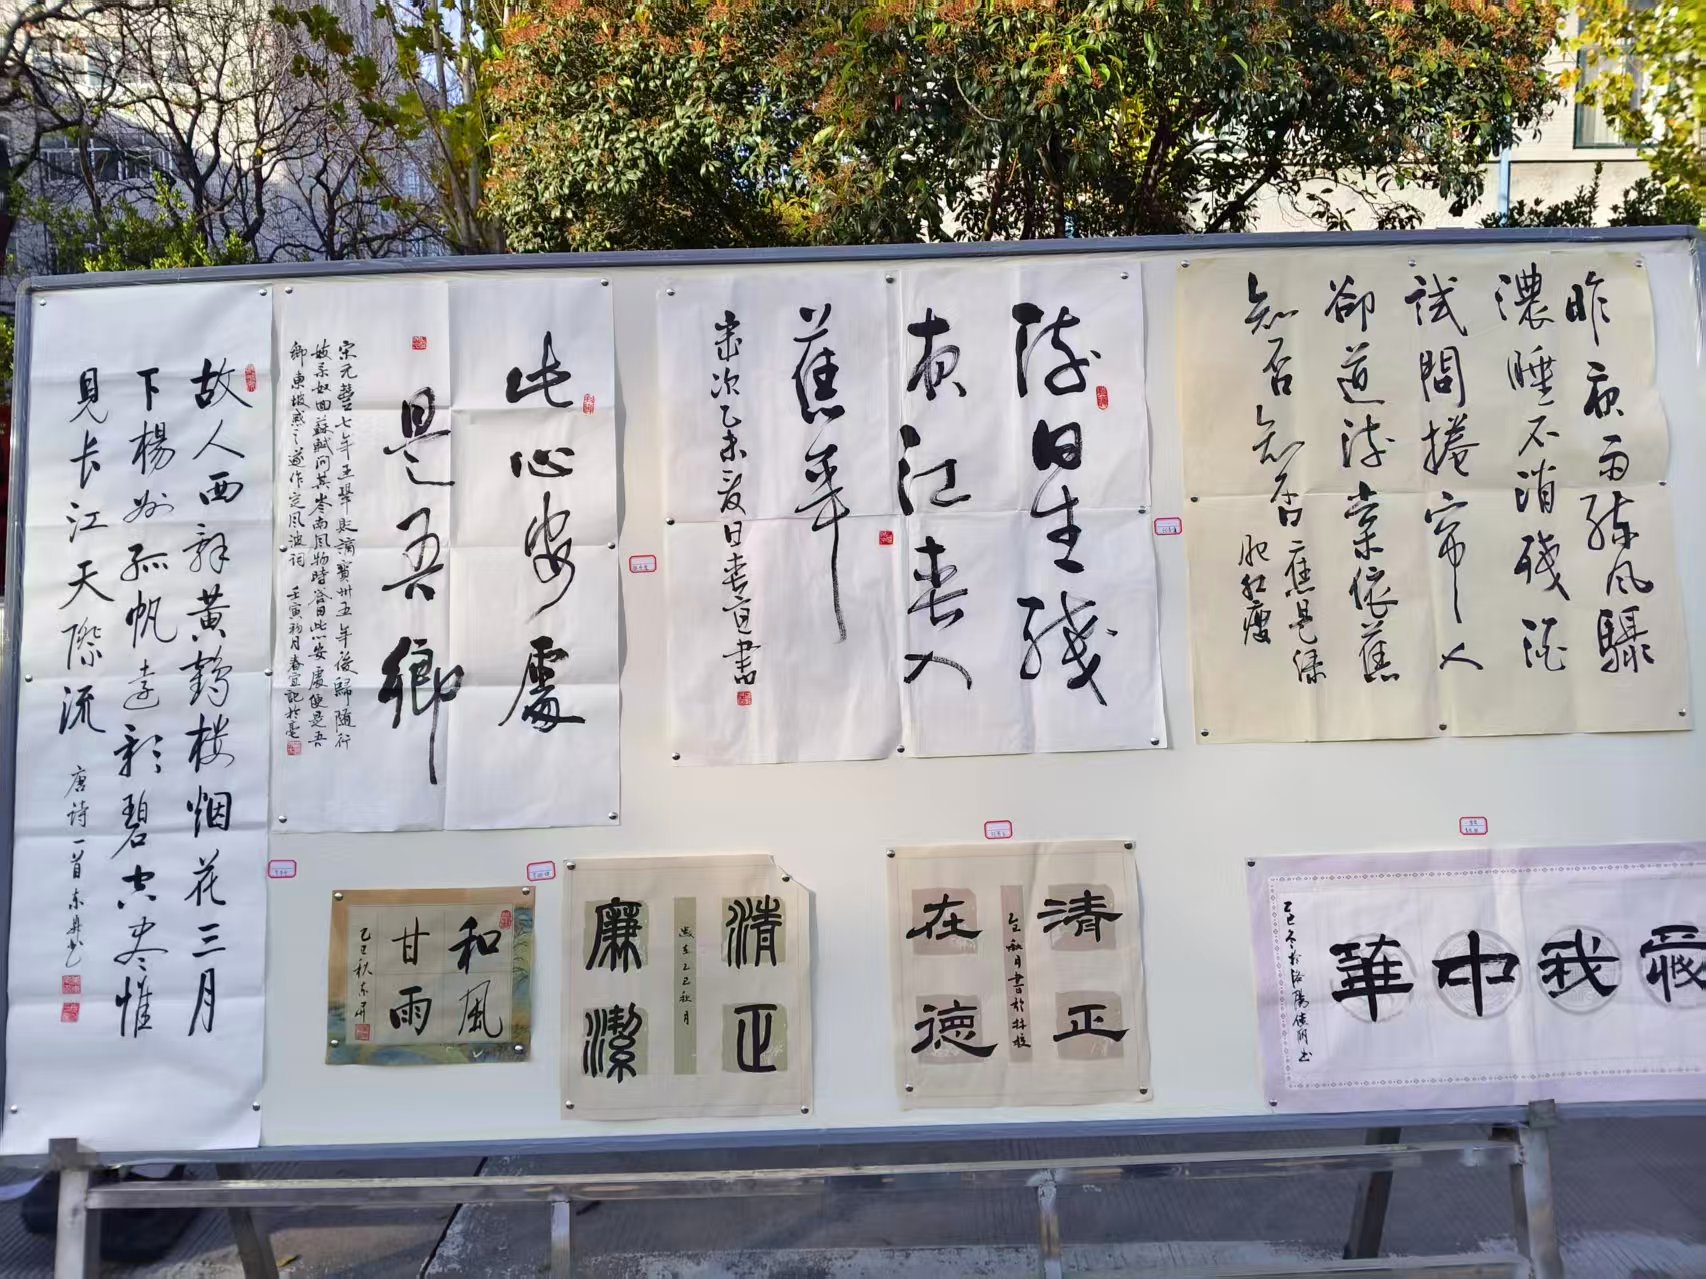 昨夜雨疎风驟
濃睡不消残酒
試問捲帘人
卻道海棠依舊
知否知否應是綠
肥红瘦
海日生残
夜江春入
舊年
歲次乙未夏日春宣書
此心安處
是吾鄉
宋元豐七年王鞏貶謫賓州五年後歸隨行
妓柔奴回蘇軾问其岺南风物時答曰此心安處便是吾
鄉東坡感之遂作定风波词 壬寅初月春宣記於亳
故人西辞黄鹤楼烟花三月
下楊州孤帆遠影碧空尽惟
見长江天際流
唐诗一首
和風
甘雨
乙巳秋东
清正
廉潔
歲在乙巳秋月
清正
在德
愛我中華